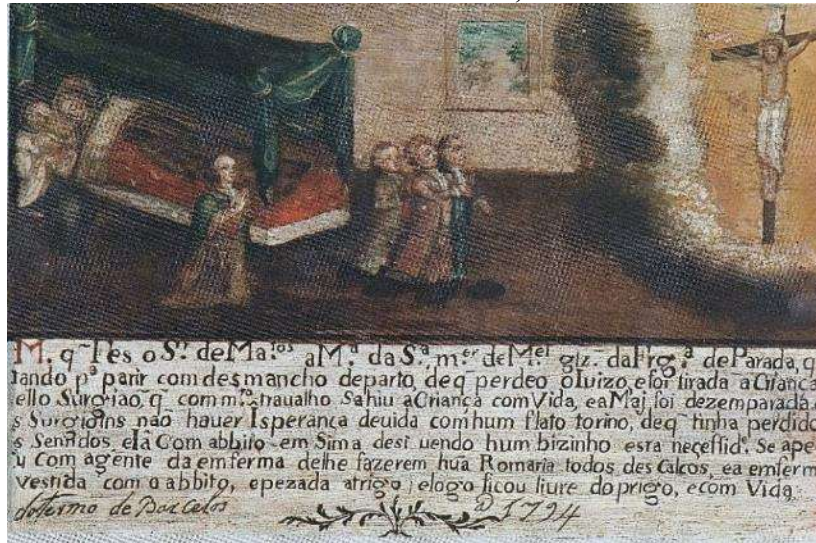 M. q~ Fes o Sr. de Matos a Ma. da Sa. mer. de Mel. glz~. da Frga. de Parada, q
tando pa. parir com desmancho departo, deq~ perdeo o Iuizo, efoi tirada a Criança
ello Surgiao, q~ com mto. trauálho Sahiu a Criança com Vida, ea Maj foi dezemparada
s Surgioins não hauer Isperança deuida com hum flato torino, deq~ tinha perdido
s Sentidos, eIá Com abbito em Sima dest uendo hum bizinho esta necessidᵉ. Se ape
u Com agente da emferma delhe fazerem hũa Romaria todos des Calços, ea emferm
vestida com o abbito, epezada atrigo, elogo ficou liure do prigo, ecom Vida.
do termo de Barcelos a 1794